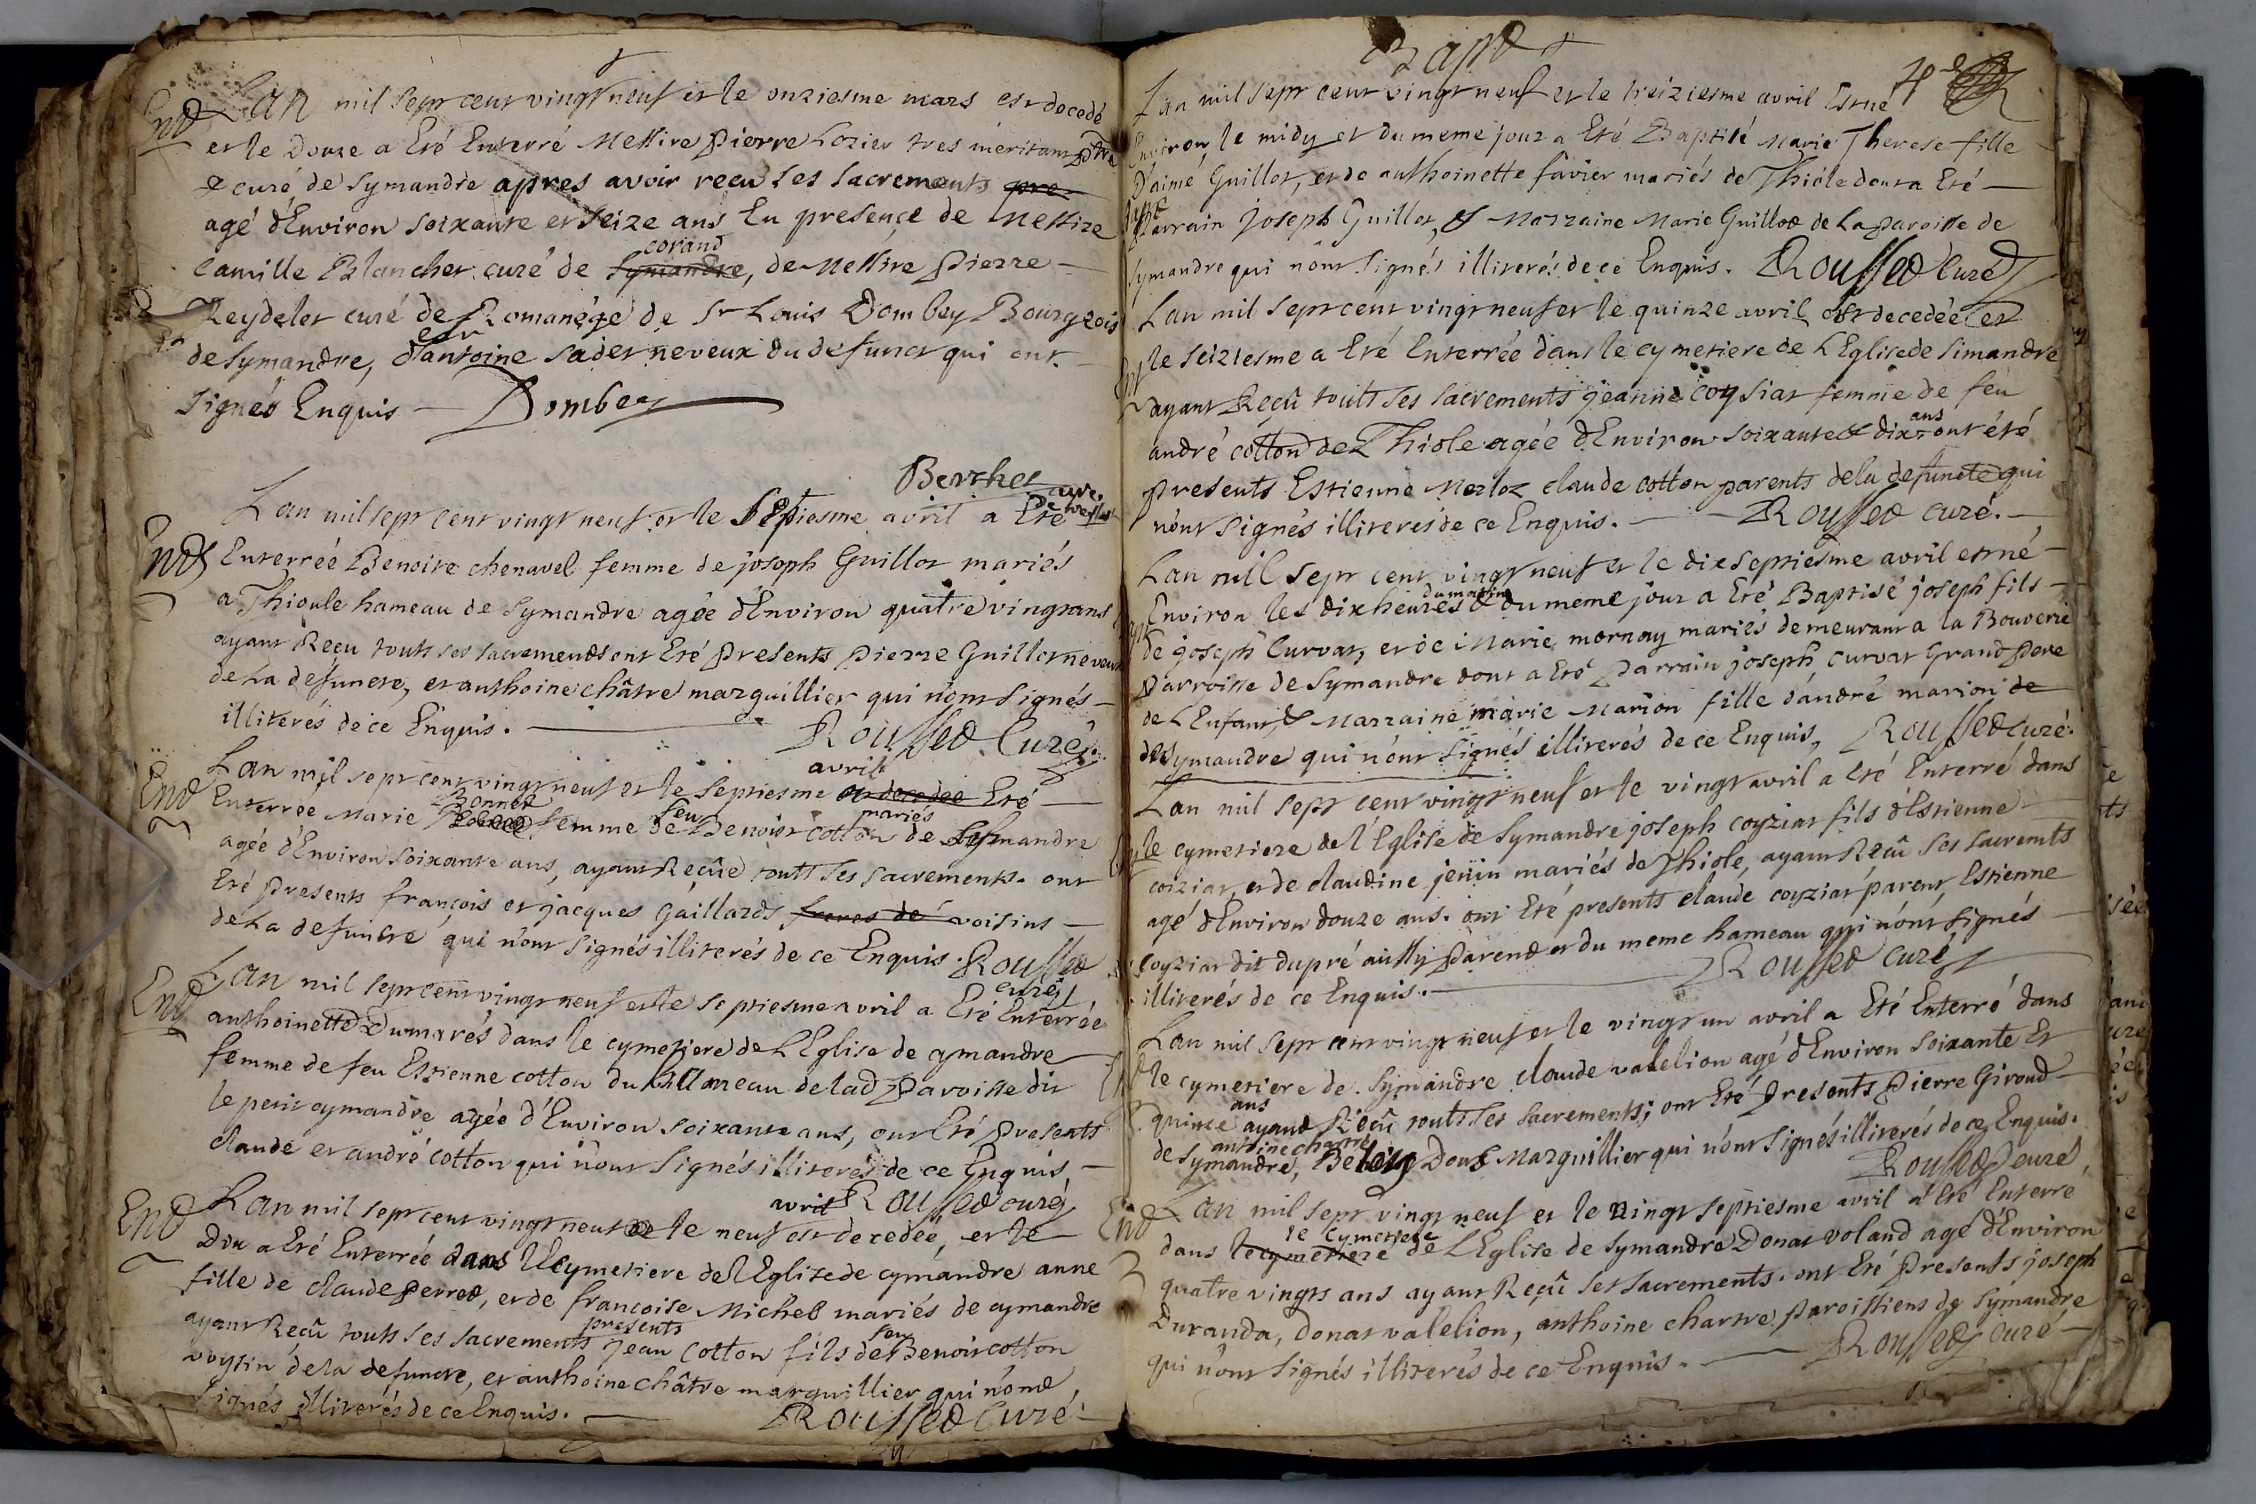 End Lan mil sept cent vingt neuf et le onziesme mars est decedé
et le douze a Eté Enterré Messire pierre Lozier tres meritant ptre
& curé de Symandre apres avoir reçu ses sacrements pre
agé dEnviron soixante et seize ans En presence de Messire
Camille Blanchet curé de Symandre, de Messire pierre
coriand
Reydelet curé de Romanége de Sr Louis Dombey Bourgeois
de Symandre, et dantoine sadet neveux du defunct qui ont
signés Enquis Dombey
Berthet curé
Lan mil sept cent vingt neuf et le septiesme avril a Eté
End Enterréé Benoite chenavel femme de joseph Guillot mariés
a Thioule hameau de Symandre agée dEnviron quatre vingts ans
ayant Reçu touts ses sacrements ont Eté presents pierre Guillot neveux
de La defuncte, et anthoine châtre marguillier qui nont signés
illiterés de ce Enquis. Roussed Curé
Lan mil sept cent vingt neuf et le septiesme avril a decedée Eté
End Enterrée Marie Bonned femme de feu Benoist cotton mariés de Symandre
agée dEnviron soixante ans, ayant Reçûe touts ses sacrements. ont
Eté presents françois et jacques gaillards freres de voisins
de La defuncte qui nont signés illiterés de ce Enquis. Roussed
curé
End Lan mil sept cent vingt neuf et le septiesme avril a Eté Enterrée
anthoinette Dumarés dans le cymetiere de LEglise de cymandre
femme de feu Estienne cotton du hameau de lad paroisse dit
le petit cymandre agée dEnviron soixante ans, ont Eté presents
claude et andré cotton qui nont signés illiterés de ce Enquis
Roussed curé
End Lan mil sept cent vingt neuf et le neuf avril est decedée, et le
Dix a Eté Enterrée dans le cymetiere de lEglise de cymandre anne
fille de claude perred, et de françoise Michel mariés de cymandre
ayant Reçû touts ses sacrements presents jean cotton fils de feu Benoit cotton
voysin de la defuncte, et anthoine châtre marguillier qui nond
signés illiterés de ce Enquis. Roussed Curé
Bapt
Lan mil sept cent vingt neuf et le treiziesme avril Est né
Environ le midy et du meme jour a Eté Baptisé Marie Therese fille
daimé Guillot, et de anthoinette favier mariés de Thiole dont a Eté
parrain joseph Guillot, & Marraine Marie Guillod de La paroisse de
Symandre qui nont signés illiterés de ce Enquis. Roussed Curé
Lan mil sept cent vingt neuf et le quinze avril est decedéé et
le seiziesme a Eté Enterrée dans le cymetiere de LEglise de Simandre
ayant Reçû touts ses sacrements jeanne coysiat femme de feu
andré cotton de Thiole agée dEnviron soixante & dix ans ont été
presents Estienne Merloz claude cotton parents de la defuncte qui
nont signés illiterés de ce Enquis. Roussed curé.
Lan mil sept cent vingt neuf et le dix septiesme avril est né
Environ les dix heures du matin & du meme jour a Eté Baptisé joseph fils
de joseph Curvat, et de Marie mornay mariés demeurant a la Bouverie
parroisse de Symandre dont a Eté parrain joseph curvat Grand pere
de LEnfant, & Marraine marie Marion fille dandré marion de
de symandre qui nont signés illiterés de ce Enquis, Roussed curé.
Lan mil sept cent vingt neuf et le vingt avril a Eté Enterré dans
le cymetiere de lEglise de Symandre joseph coyziat fils dEstienne
coiziat, et de claudine jenin mariés de Thiole, ayant Reçû ses sacremts
agé dEnviron douze ans. ont Eté presents claude coyziat parent, Estienne
coyziat dit dupré aussy parend et du meme hameau qui nont signés
illiterés de ce Enquis. Roussed Curé
Lan mil sept cent vingt neuf et le vingt un avril a Eté Enterré dans
le cymetiere de Symandre claude valelion agé dEnviron soixante Et
quinze ans ayand Reçû touts ses sacrements; ont Eté presents pierre Giroud
de Symandre, antoine chartre Marguillier qui nont signés illiterés de ce Enquis.
Roussed curé
End Lan mil sept vingt neuf et le vingt septiesme avril a Eté Enterré
dans le cymetiere le cymetiere de LEglise de Symandre Donat voland agé dEnviron
quatre vingts ans ayant Reçû ses sacrements. ont Eté presents joseph
Duranda, donat valelion, anthoine chartre paroissiens de Symandre
qui nont signés illiterés de ce Enquis. Roussed Curé